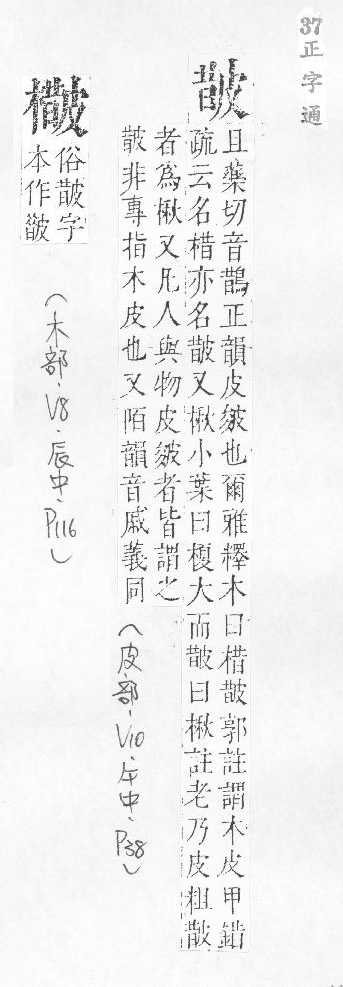 37正字通
皵
且藥切音鵲正韻皮皴也爾雅釋木曰棤皵郭註謂木皮甲錯
疏云名棤亦名皵又楸小葉曰榎大而皵曰楸註老乃皮粗皵
者為楸又凡人與物皮皴者皆謂之
皵非專指木皮也又陌韻音戚義同
(皮部、V10、午中、P38)
𣀔
俗皵字
本作皵
(木部、V8、辰中、P116)